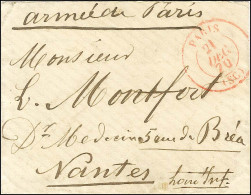 armée de Paris
PARIS
21
Monsieur
L. Montfort
Dr. Medecin 5 rue de Bréa
Nantes